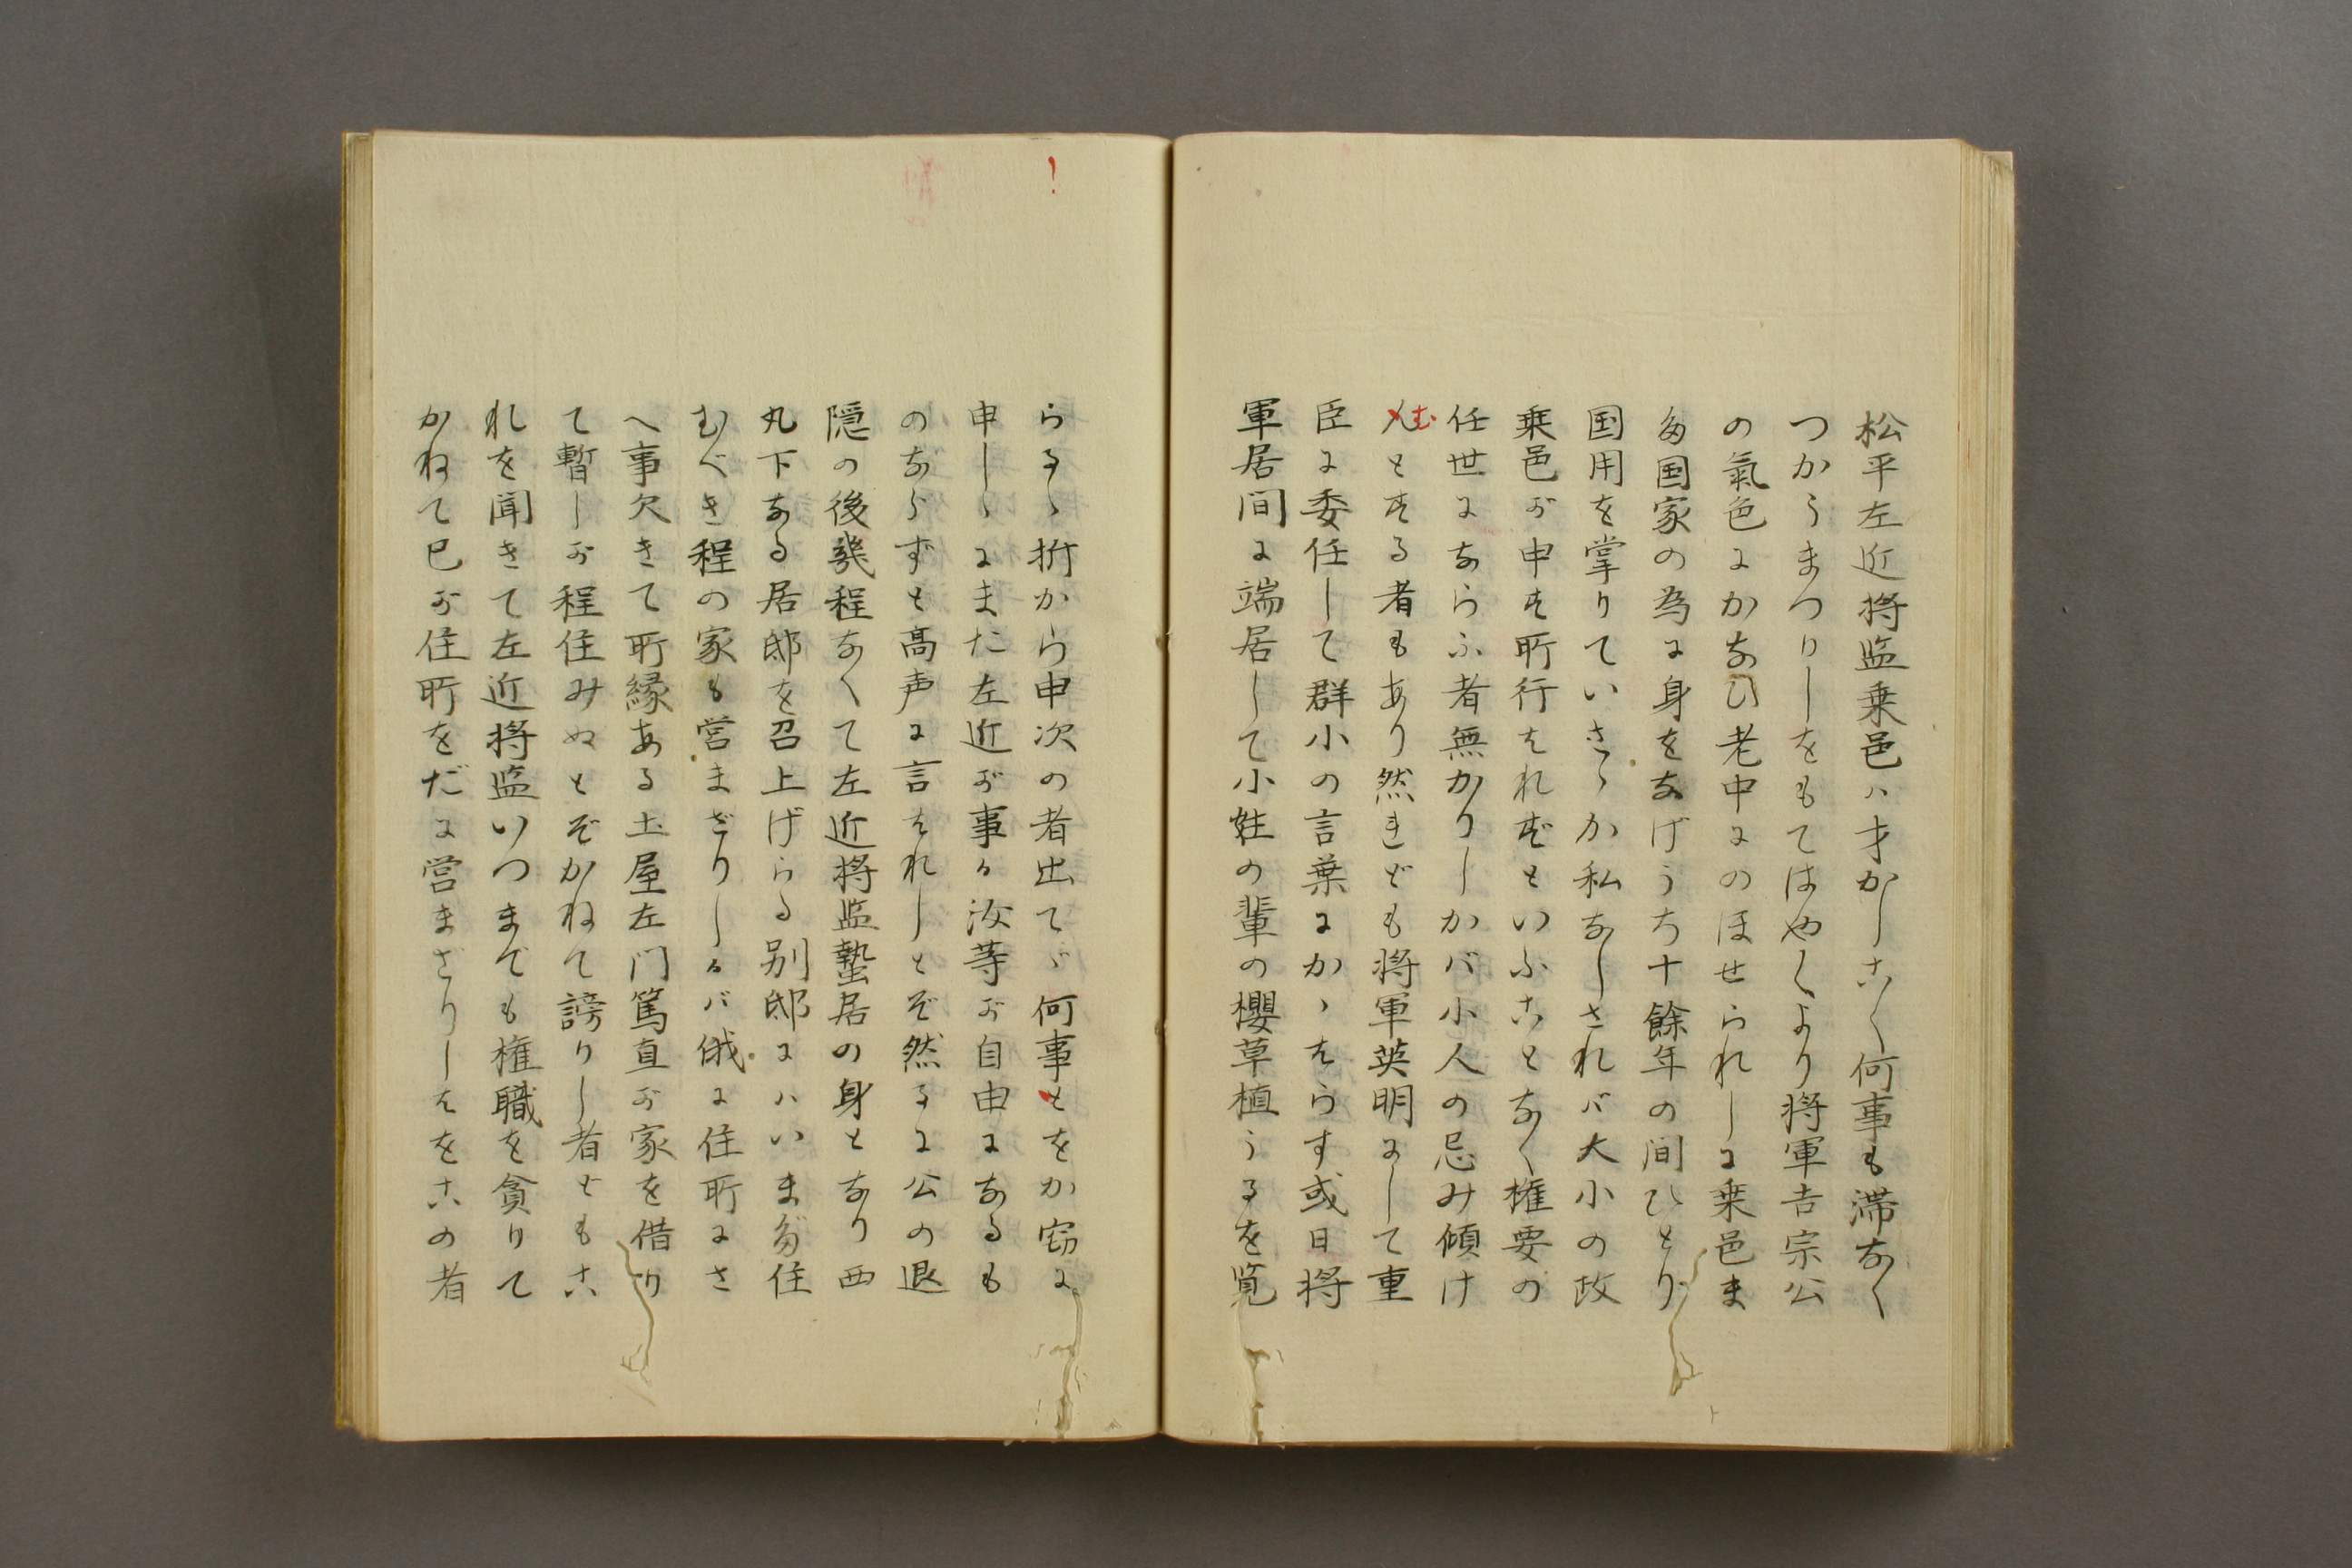 松平左近将监乗邑ハ才かしこく何事も滞なく
つかうまつりしをもてはやくより将軍吉宗公
の氣色にかなひ老中にのほせられしに乗邑ま
た国家の為に身をなげうち十餘年の間ひとり
国用を掌りていさゝか私なしされバ大小の政
乗邑が申す所行はれずといふことなく権要の
任世にならふ者無かりしかバ小人の忌み傾け
むとする者もあり然れども将軍英明にして重
臣に委任して群小の言葉にかゝはらす或日将
軍居間に端居して小姓の輩の櫻草植うるを覧
らるゝ折から申次の者出てゞ何事をか窃に
申しゝにまた左近が事か汝等が自由になるも
のならずと高声に言はれしとぞ然るに公の退
隠の後幾程なくて左近将监蟄居の身となり西
丸下なる居邸を召上げらる別邸にハいまだ住
むべき程の家も営まざりしかバ俄に住所にさ
へ事欠きて所縁ある土屋左門篤直が家を借り
て暫しが程住みぬとぞかねて謗りし者ともこ
れを聞きて左近将监いつまでも権職を貪りて
かねて已が住所をだに営まざりしはをこの者